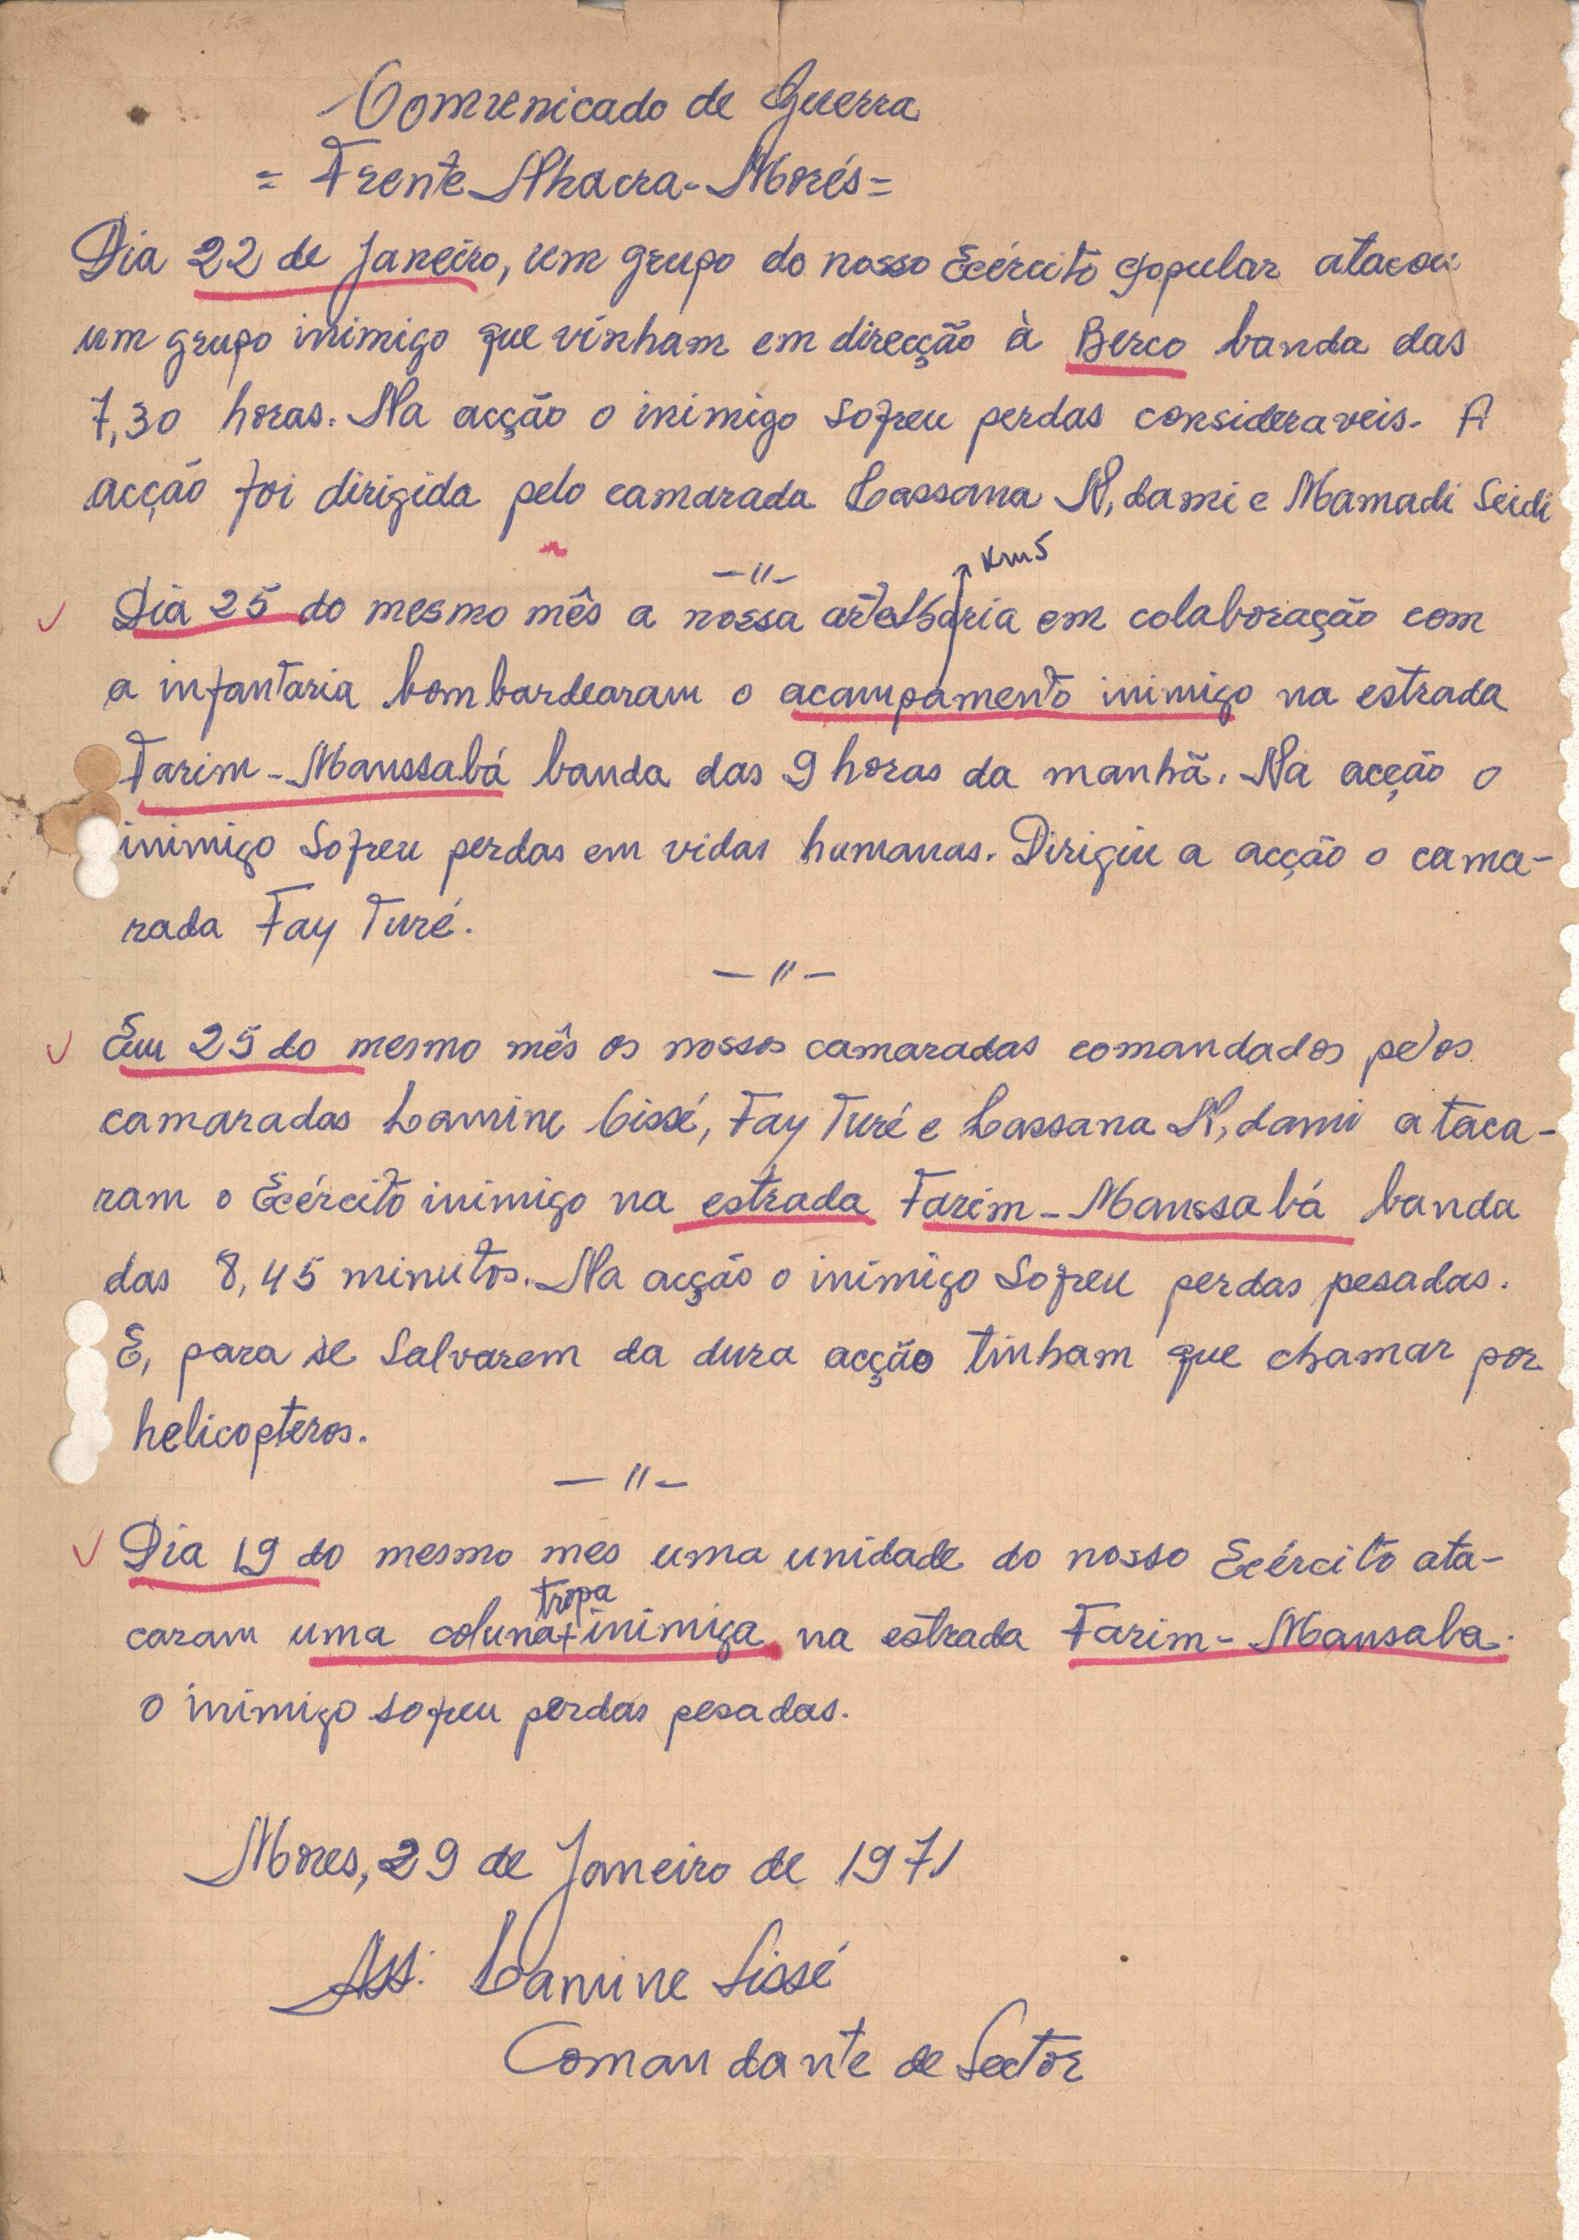 Comunicado de Guerra
= Frente Nhacra-Morés=
Dia 22 de Janeiro, um grupo do nosso Exército popular atacou
um grupo inimigo que vinham em direcção à Berco banda das
7,30 horas. Na acção o inimigo sofreu perdas consideraveis. A
acção foi dirigida pelo camarada Lassana N,dami e Mamadi Seidi
-"-
Km 5
Dia 25 do mesmo mês a nossa artelharia em colaboração com
a infantaria bombardearam o acampamento inimigo na estrada
Farim-Manssabá banda das 9 horas da manhã. Na acção o
inimigo sofreu perdas em vidas humanas. Dirigiu a acção o cama-
rada Fay Turé.
-"-
Em 25 do mesmo mês os nossos camaradas comandados pelos
camaradas Lamine Cissé, Fay Turé e Lassana N,dami ataca-
ram o Exército inimigo na estrada Farim-Manssabá banda
das 8,45 minutos. Na acção o inimigo sofreu perdas pesadas.
E, para se salvarem da dura acção tinham que chamar por
helicopteros.
-"-
Dia 19 do mesmo mes uma unidade do nosso Exército ata-
tropa
caram uma coluna+inimiga na estrada Farim-Mansaba.
O inimigo sofreu perdas pesadas.
Mores, 29 de Janeiro de 1971
Ass. Lamine Sissé
Comandante de Sector